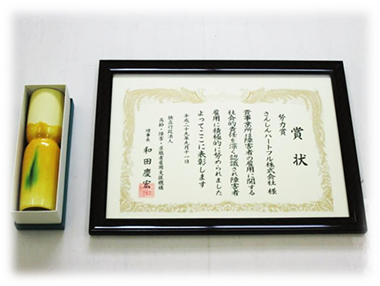 賞状
努力賞
さんしんハートフル株式会社 様
貴事業所は障害者の雇用に関する
社会的責任を深く認識され障害者
雇用に積極的に努められました
よってここに表彰します
平成二十九年九月十一日
独立行政法人
高齢・障害・求職者雇用支援機構
理事長 和田慶宏